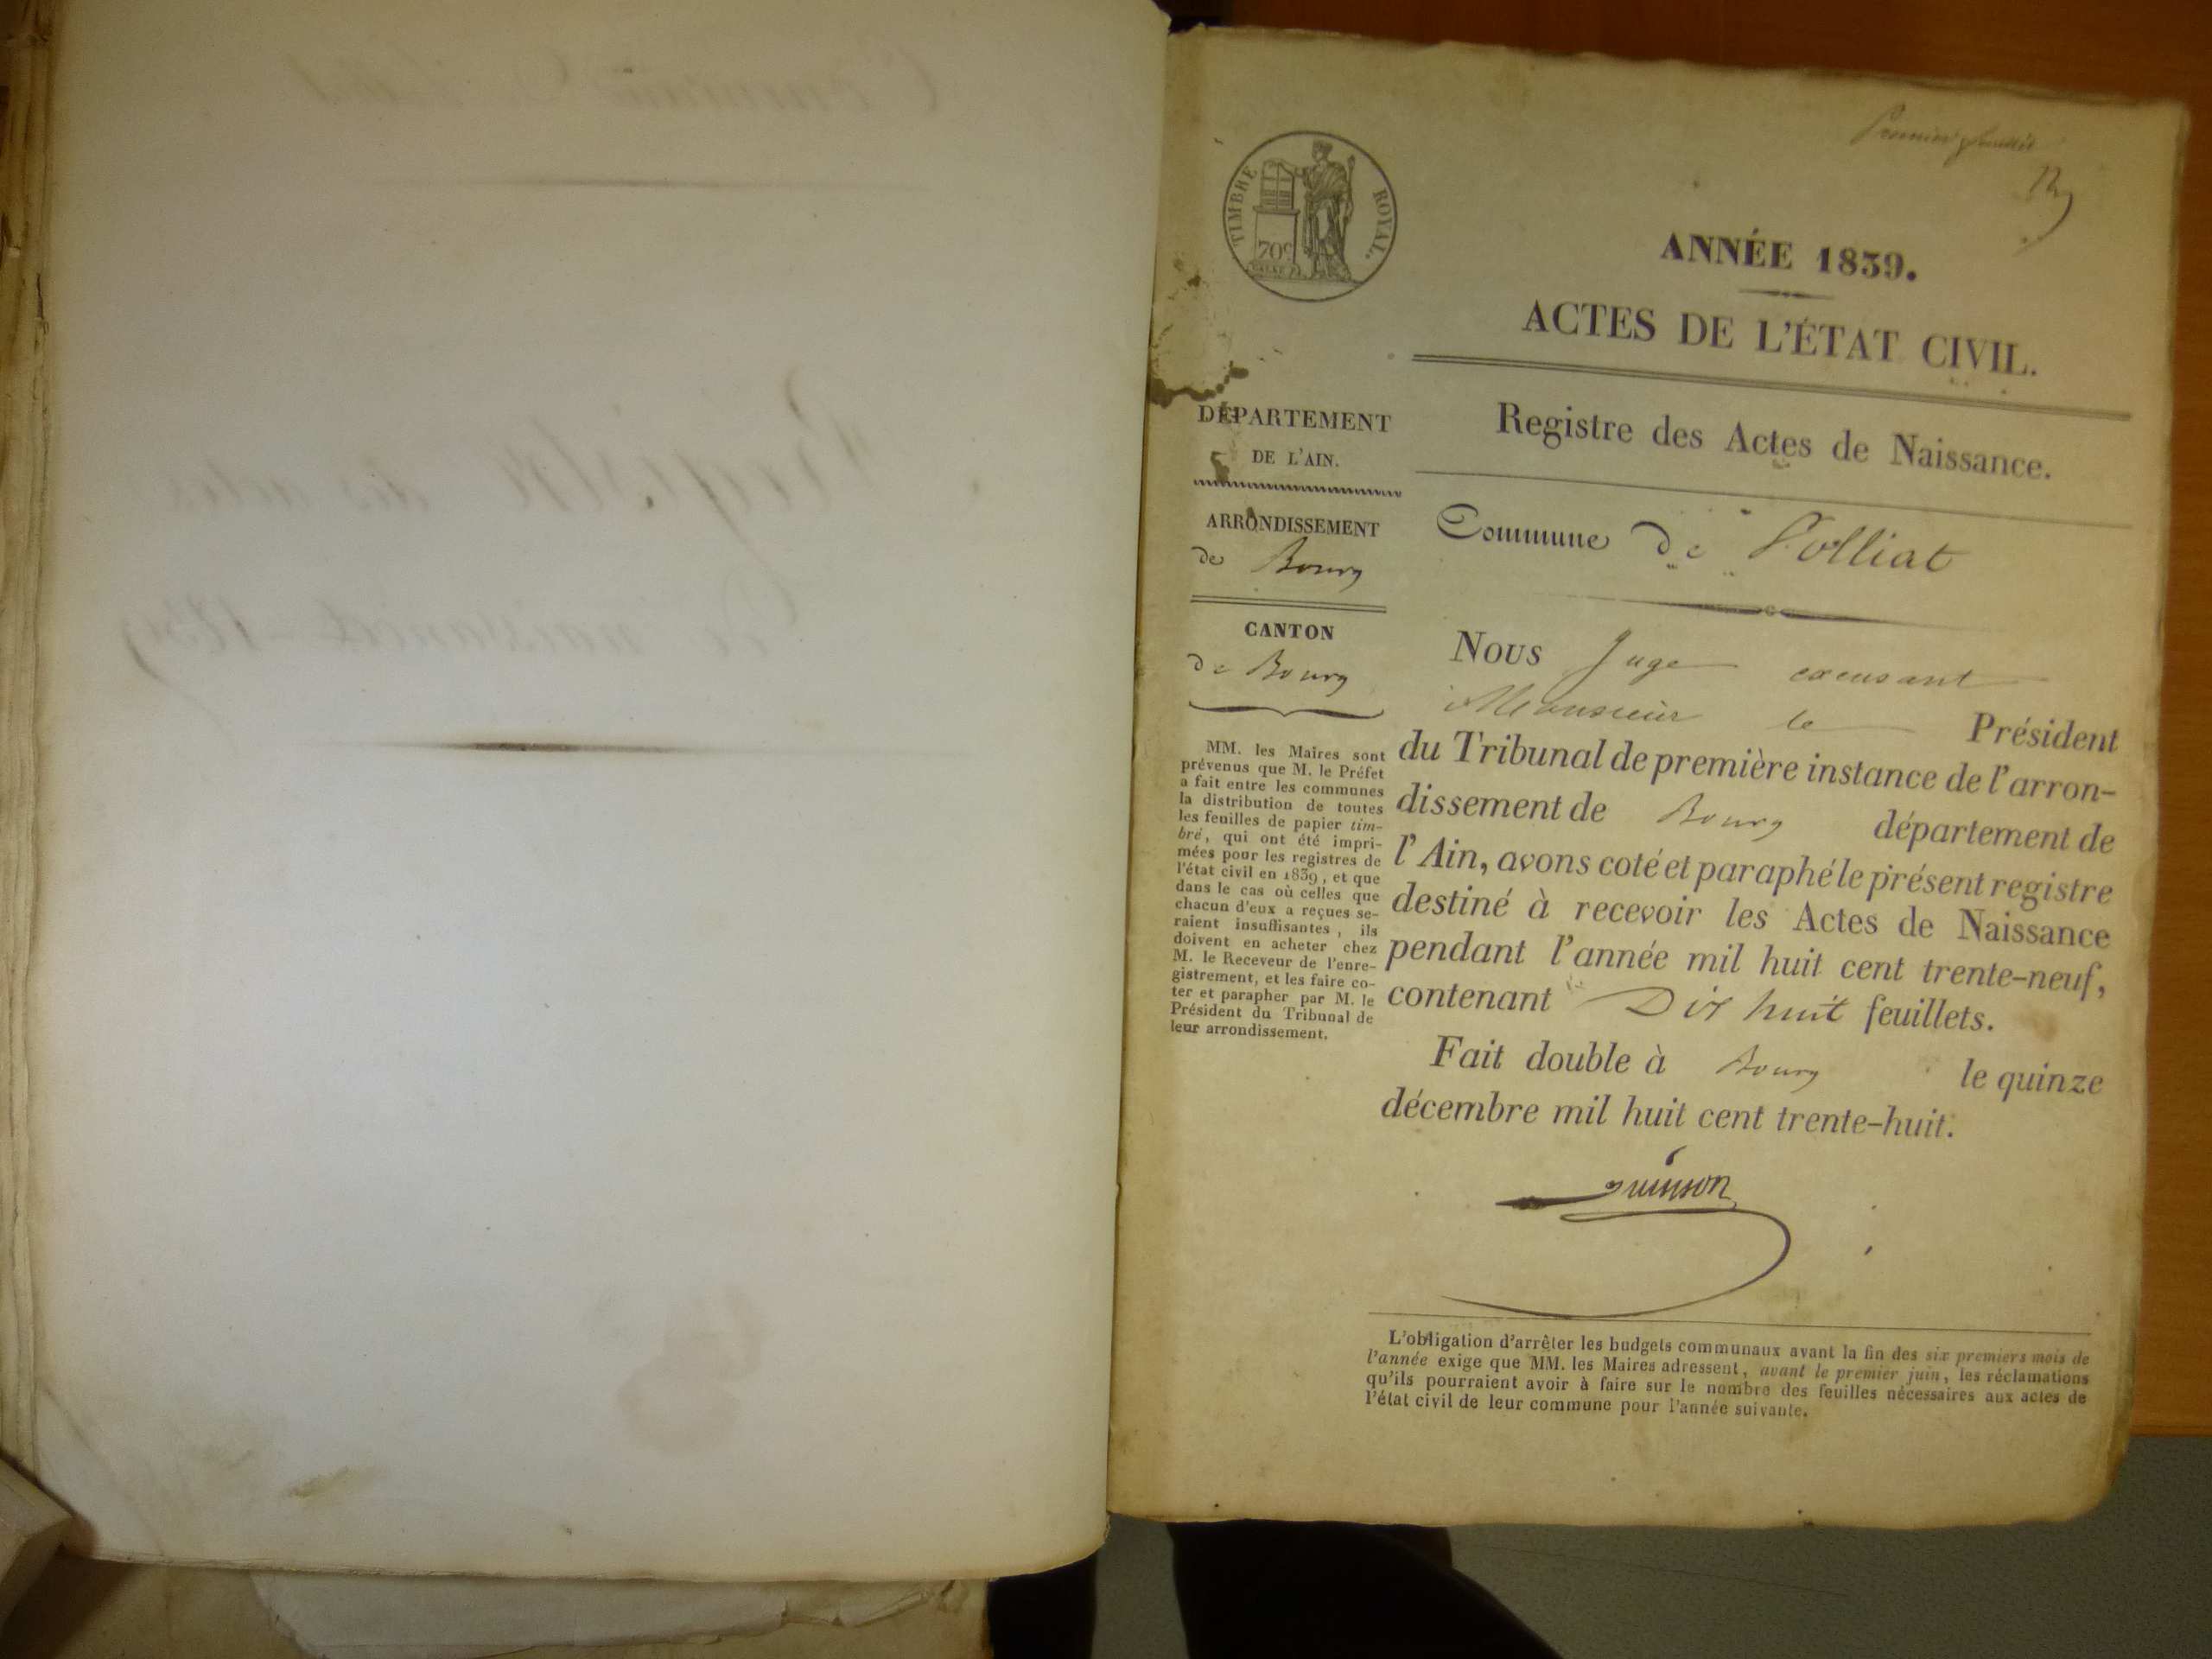 Premier feuillet
TIMBRE ROYAL.
70c
ANNÉE 1839.
ACTES DE L'ÉTAT CIVIL.
DÉPARTEMENT
DE L'AIN.
ARRONDISSEMENT
de Bourg
CANTON
de Bourg
MM. les Maires sont
prévenus que M. le Préfet
a fait entre les communes
la distribution de toutes
les feuilles de papier tim-
bré, qui ont été impri-
mées pour les registres de
l'état civil en 1839, et que
dans le cas où celles que
chacun d'eux a reçues se-
raient insuffisantes, ils
doivent en acheter chez
M. le Receveur de l'enre-
gistrement, et les faire co-
ter et parapher par M. le
Président du Tribunal de
leur arrondissement.
Registre des Actes de Naissance.
Commune de Polliat
Nous Juge excusant
Monsieur le Président
du Tribunal de première instance de l'arron-
dissement de Bourg département de
l'Ain, avons coté et paraphé le présent registre
destiné à recevoir les Actes de Naissance
pendant l'année mil huit cent trente-neuf,
contenant Dix huit feuillets.
Fait double à Bourg le quinze
décembre mil huit cent trente-huit.
L'obligation d'arrêter les budgets communaux avant la fin des six premiers mois de
l'année exige que MM. les Maires adressent, avant le premier juin, les réclamations
qu'ils pourraient avoir à faire sur le nombre des feuilles nécessaires aux actes de
l'état civil de leur commune pour l'année suivante.